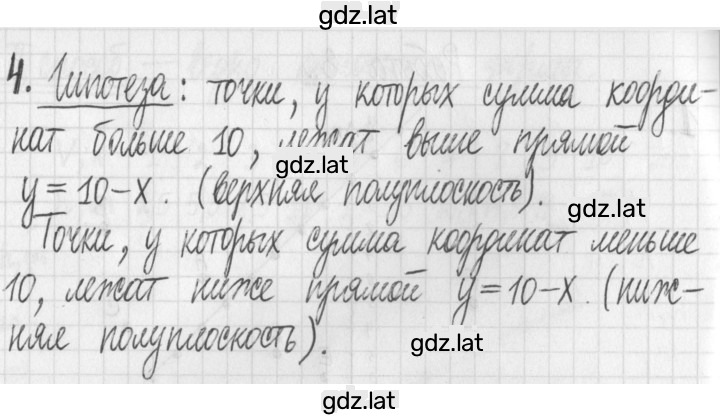 gdz.lat
4. Гипотеза: точки, у которых сумма коорди-
нат больше 10, лежат выше прямой
gdz.lat
y = 10 - x. (верхняя полуплоскость).
gdz.lat
Точки, у которых сумма координат меньше
10, лежат ниже прямой y = 10 - x. (ниж-
няя полуплоскость).
gdz.lat
gdz.lat